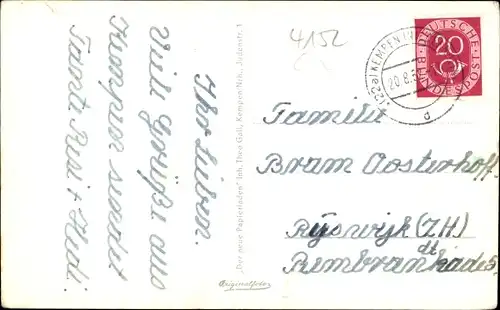 Ihr Lieben.
Viele Grüße aus
Kempen sendet
Tante Resi + Hedi.
"Der neue Papierladen" Inh. Theo Gall, Kempen/Ndrh., Judenstr. 1
Originalfoto
4152
(22a) KEMPEN
20.8.5
d
DEUTSCHE
20
BUNDESPOST
Familie
Bram Oosterhoff.
Ryswijk (ZH)
dt
Rembrankade 5